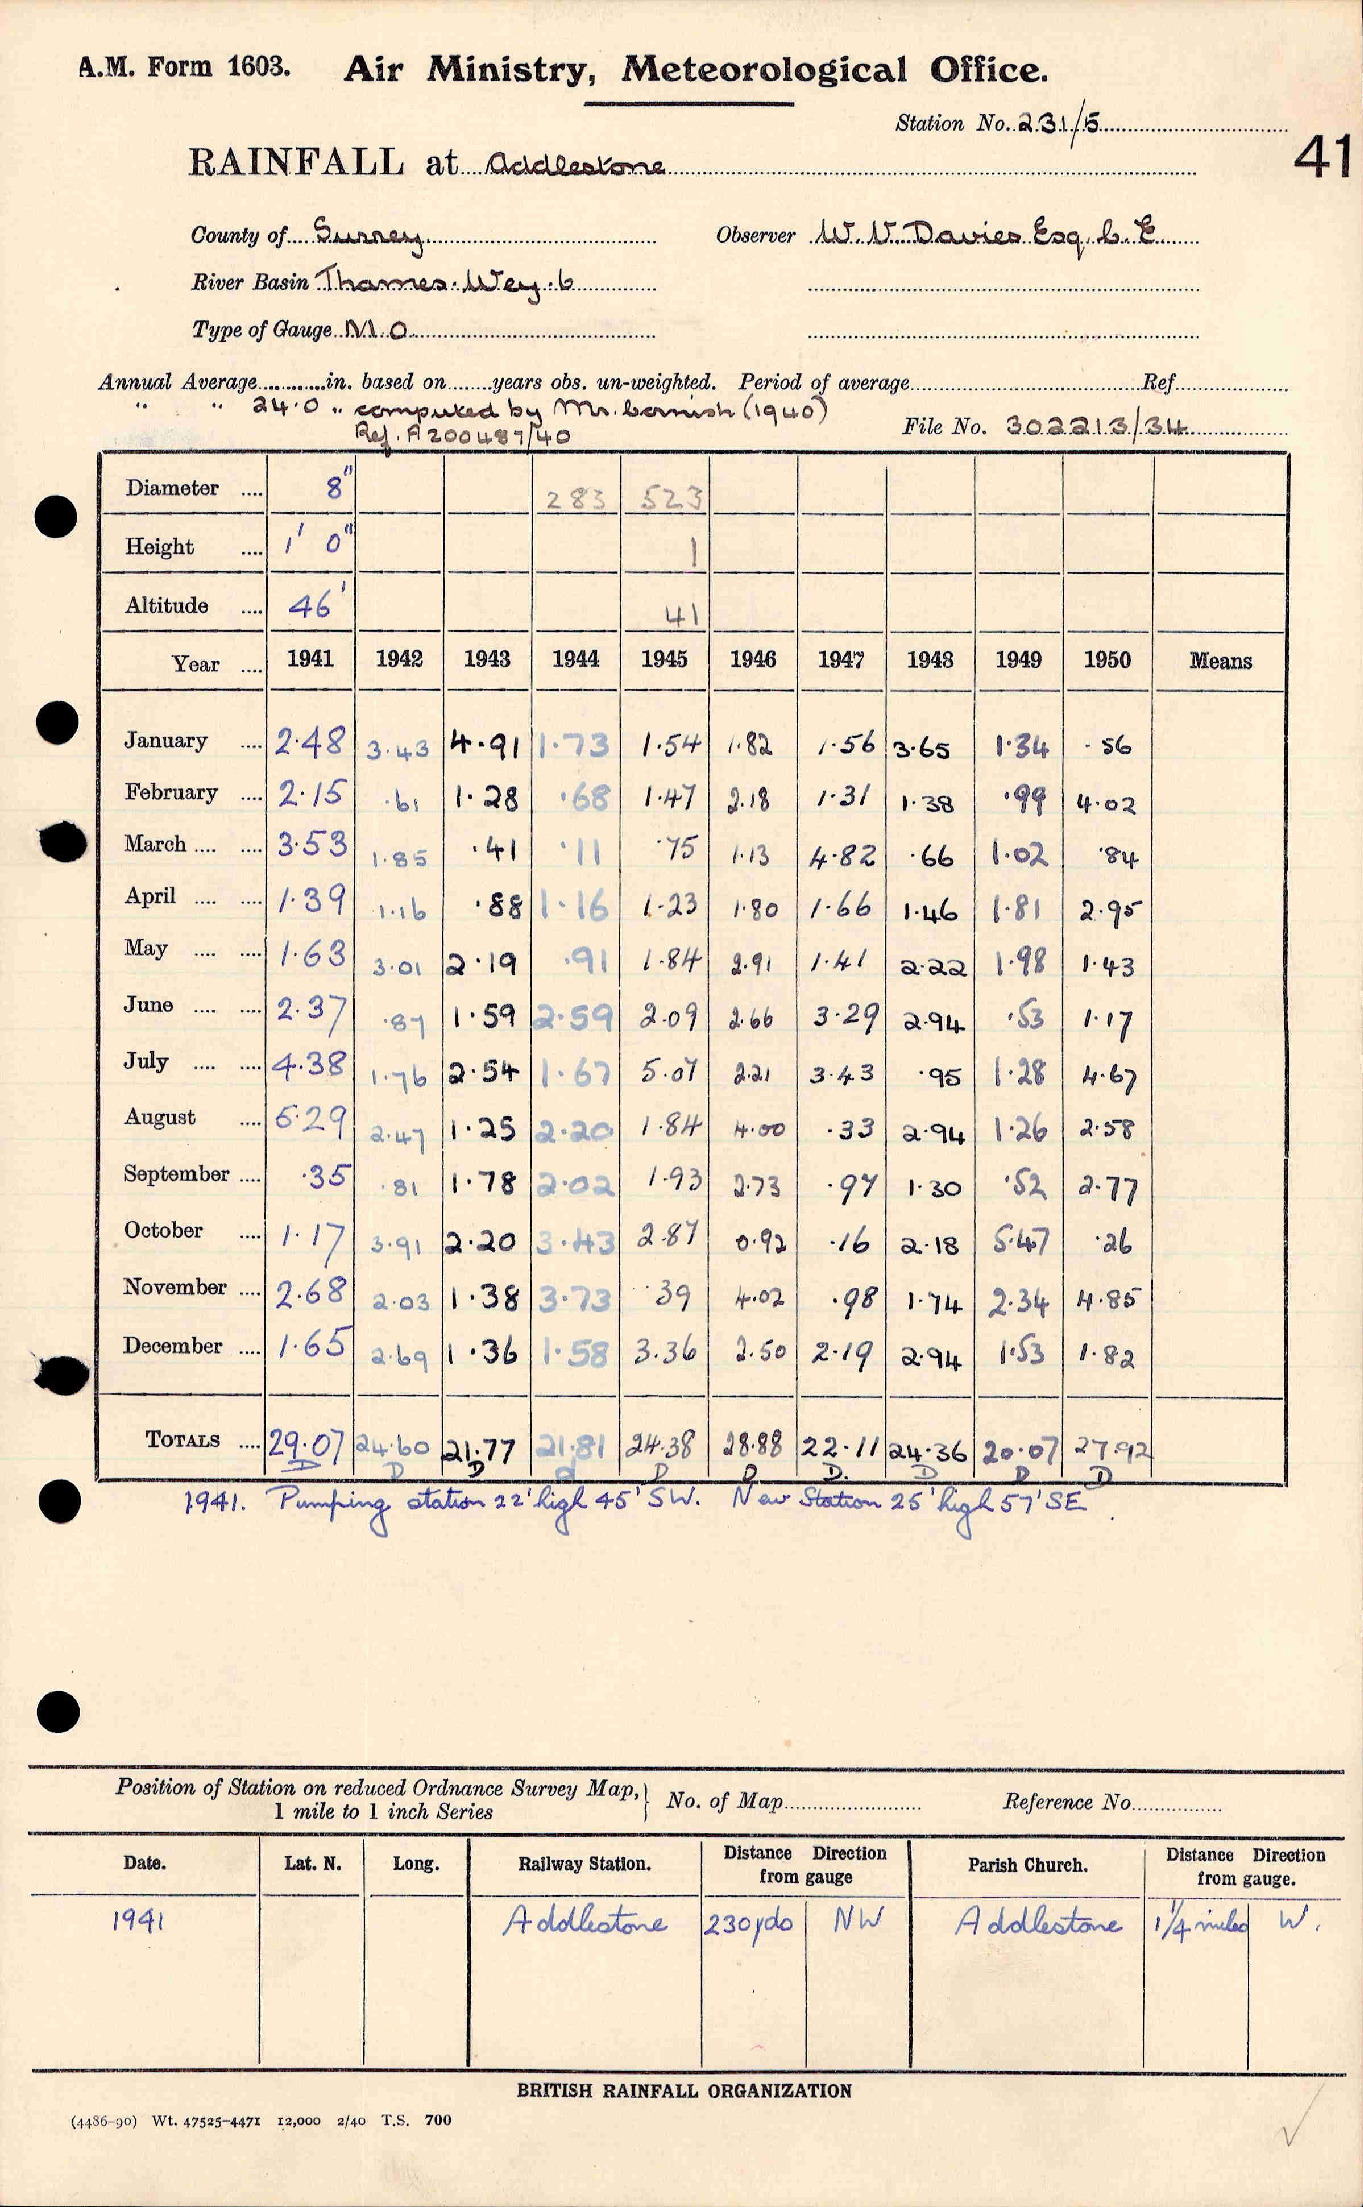 A.M. Form 1603. Air Ministry, Meteorological Office.
Station No. 231/5
41
RAINFALL at Addlestone
County of Surrey Observer W. V. Davies Esq. C. E
River Basin Thames. Wey. 6
Type of Gauge M.O
Annual Average............in. based on........years obs. un-weighted. Period of average............Ref............
" " 24.0 " computed by Mr. Cornish (1940)
Ref. A200487/40 File No. 302213/34
Diameter .... 8" 283 523
Height .... 1' 0" 1
Altitude .... 46' 41
Year .... 1941 1942 1943 1944 1945 1946 1947 1948 1949 1950 Means
January .... 2.48 3.43 4.91 1.73 1.54 1.82 1.56 3.65 1.34 .56
February .... 2.15 .61 1.28 .68 1.47 2.18 1.31 1.38 .99 4.02
March .... .... 3.53 1.85 .41 .11 .75 1.13 4.82 .66 1.02 .84
April .... .... 1.39 1.16 .88 1.16 1.23 1.80 1.66 1.46 1.81 2.95
May .... .... 1.63 3.01 2.19 .91 1.84 2.91 1.41 2.22 1.98 1.43
June .... .... 2.37 .87 1.59 2.59 2.09 2.66 3.29 2.94 .53 1.17
July .... .... 4.38 1.76 2.54 1.67 5.07 2.21 3.43 .95 1.28 4.67
August .... 5.29 2.47 1.25 2.20 1.84 4.00 .33 2.94 1.26 2.58
September .... .35 .81 1.78 2.02 1.93 2.73 .97 1.30 .52 2.77
October .... 1.17 3.91 2.20 3.43 2.87 0.92 .16 2.18 5.47 .26
November .... 2.68 2.03 1.38 3.73 .39 4.02 .98 1.74 2.34 4.85
December .... 1.65 2.69 1.36 1.58 3.36 2.50 2.19 2.94 1.53 1.82
TOTALS .... 29.07 24.60 21.77 21.81 24.38 28.88 22.11 24.36 20.07 27.92
D D D d D D D. D D D
1941. Pumping station 22' high 45' SW. New Station 25' high 57' SE.
Position of Station on reduced Ordnance Survey Map, } No. of Map............ Reference No............
1 mile to 1 inch Series
Date. Lat. N. Long. Railway Station. Distance Direction from gauge Parish Church. Distance Direction from gauge.
1941 Addlestone 230 yds NW Addlestone 1/4 miles W.
BRITISH RAINFALL ORGANIZATION
(4486-90) Wt. 47525-4471 12,000 2/40 T.S. 700